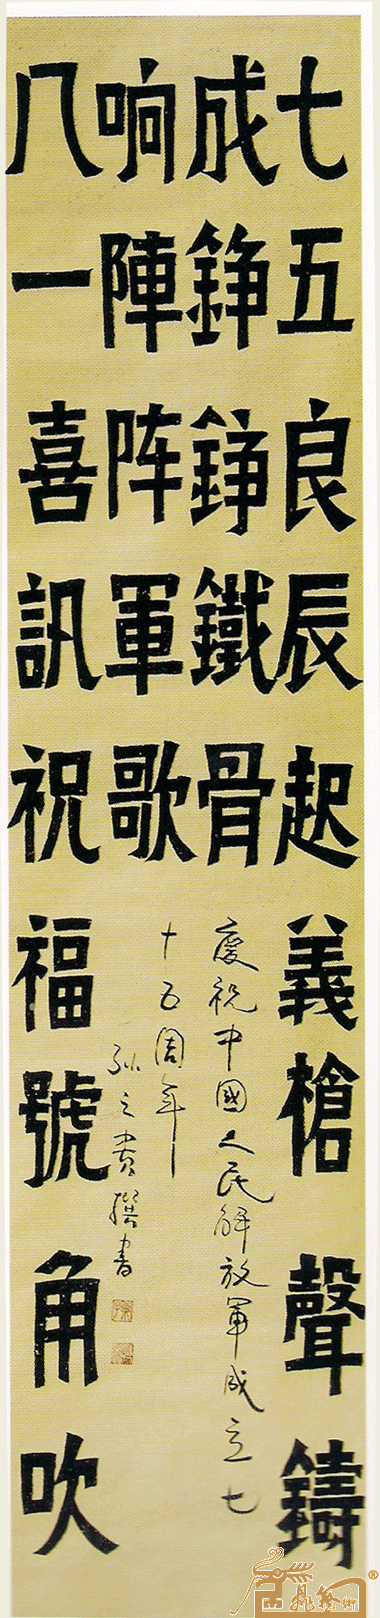 七五良辰起義槍聲鑄
成錚錚鐵骨
八一喜訊祝福號角吹
响陣阵軍歌
慶祝中國人民解放軍成立七
十五周年
孙之撰書